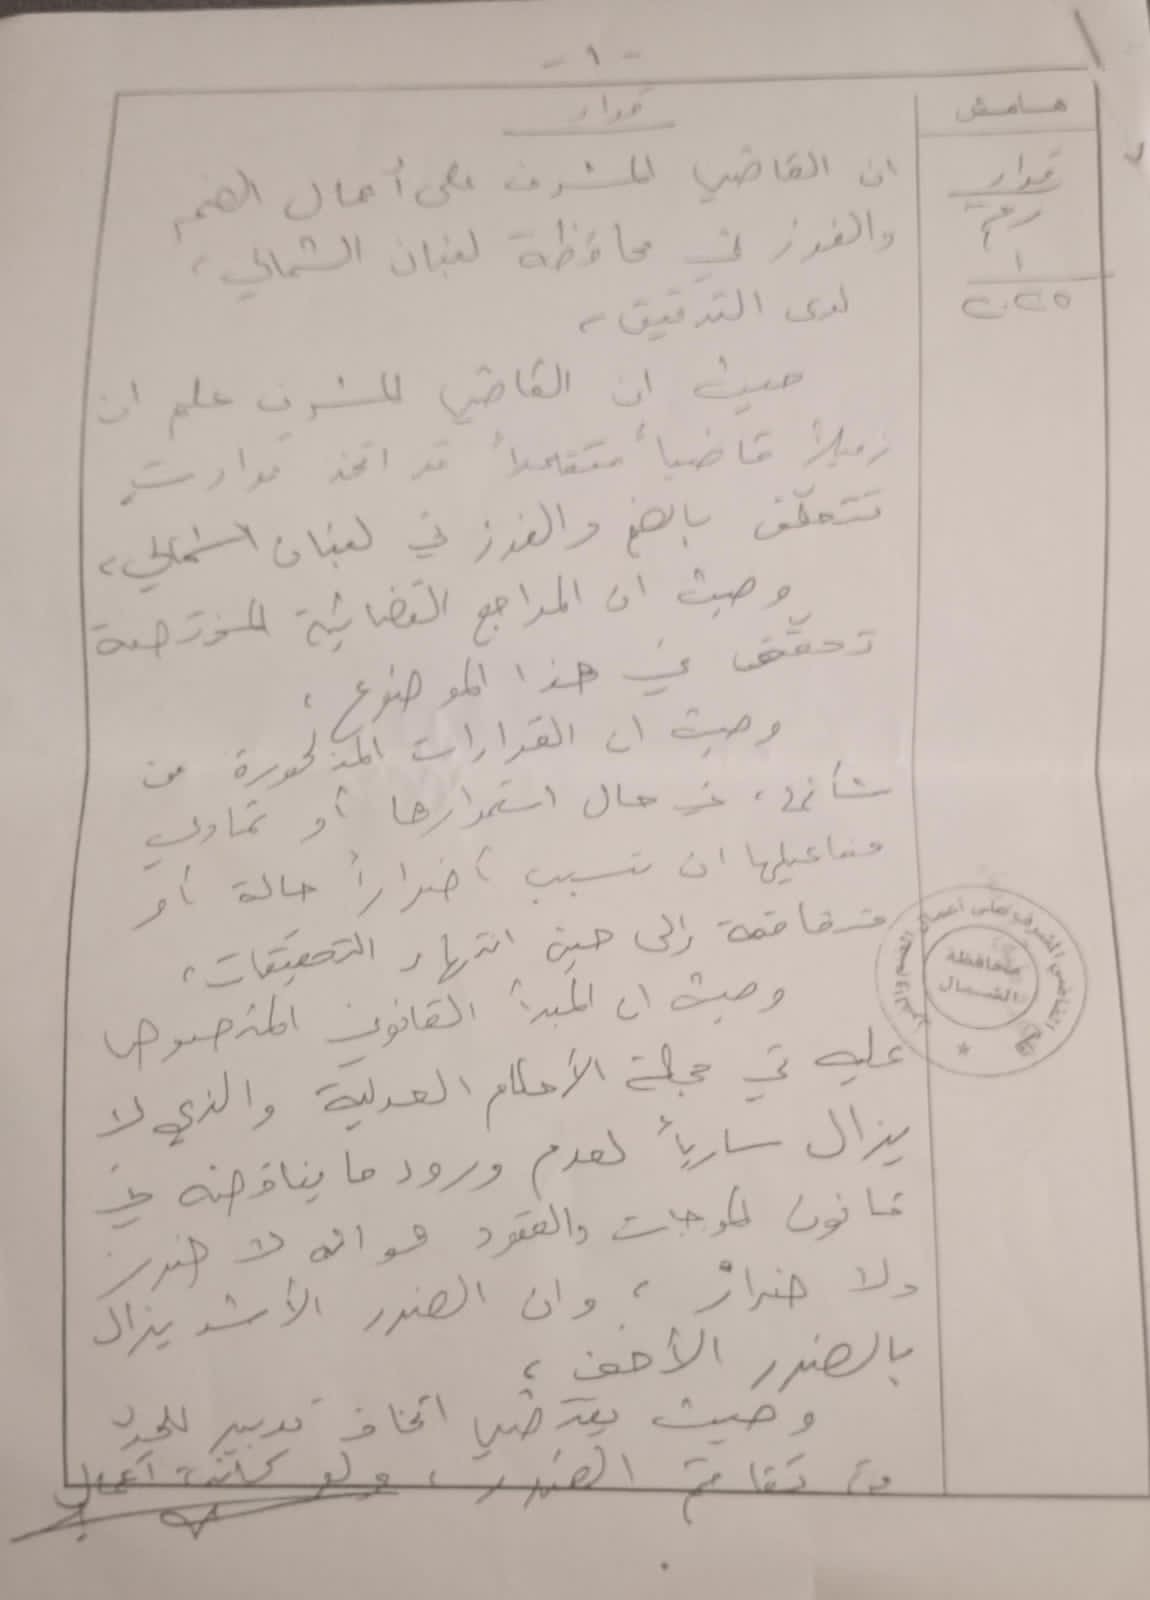 - ١ -
هامش
قرار
رقم
١
٢٠٢٥
قرار
ان القاضي المشرف على أعمال الضم
والفرز في محافظة لبنان الشمالي،
لدى التدقيق،
حيث ان القاضي المشرف علم ان
زميلاً قاضياً متقاعداً قد اتخذ قرارات
تتعلّق بالضم والفرز في لبنان الشمالي،
وحيث ان المراجع القضائية المختصة
تحقّق في هذا الموضوع،
وحيث ان القرارات المذكورة من
شأنها، في حال استمرارها أو تمادي
مفاعيلها ان تسبب أضراراً حالة أو
متفاقمة إلى حين انتهاء التحقيقات،
وحيث ان المبدأ القانوني المنصوص
عليه في مجلة الأحكام العدلية والذي لا
يزال سارياً لعدم ورود ما يناقضه في
قانون الموجبات والعقود هو انه لا ضرر
ولا ضرار، وان الضرر الأشد يزال
بالضرر الأخف،
وحيث يقتضي اتخاذ تدبير للحدّ
من تفاقم الضرر، ولو كانت أعمال
القاضي المشرف على أعمال الضم والفرز
محافظة
الشمال